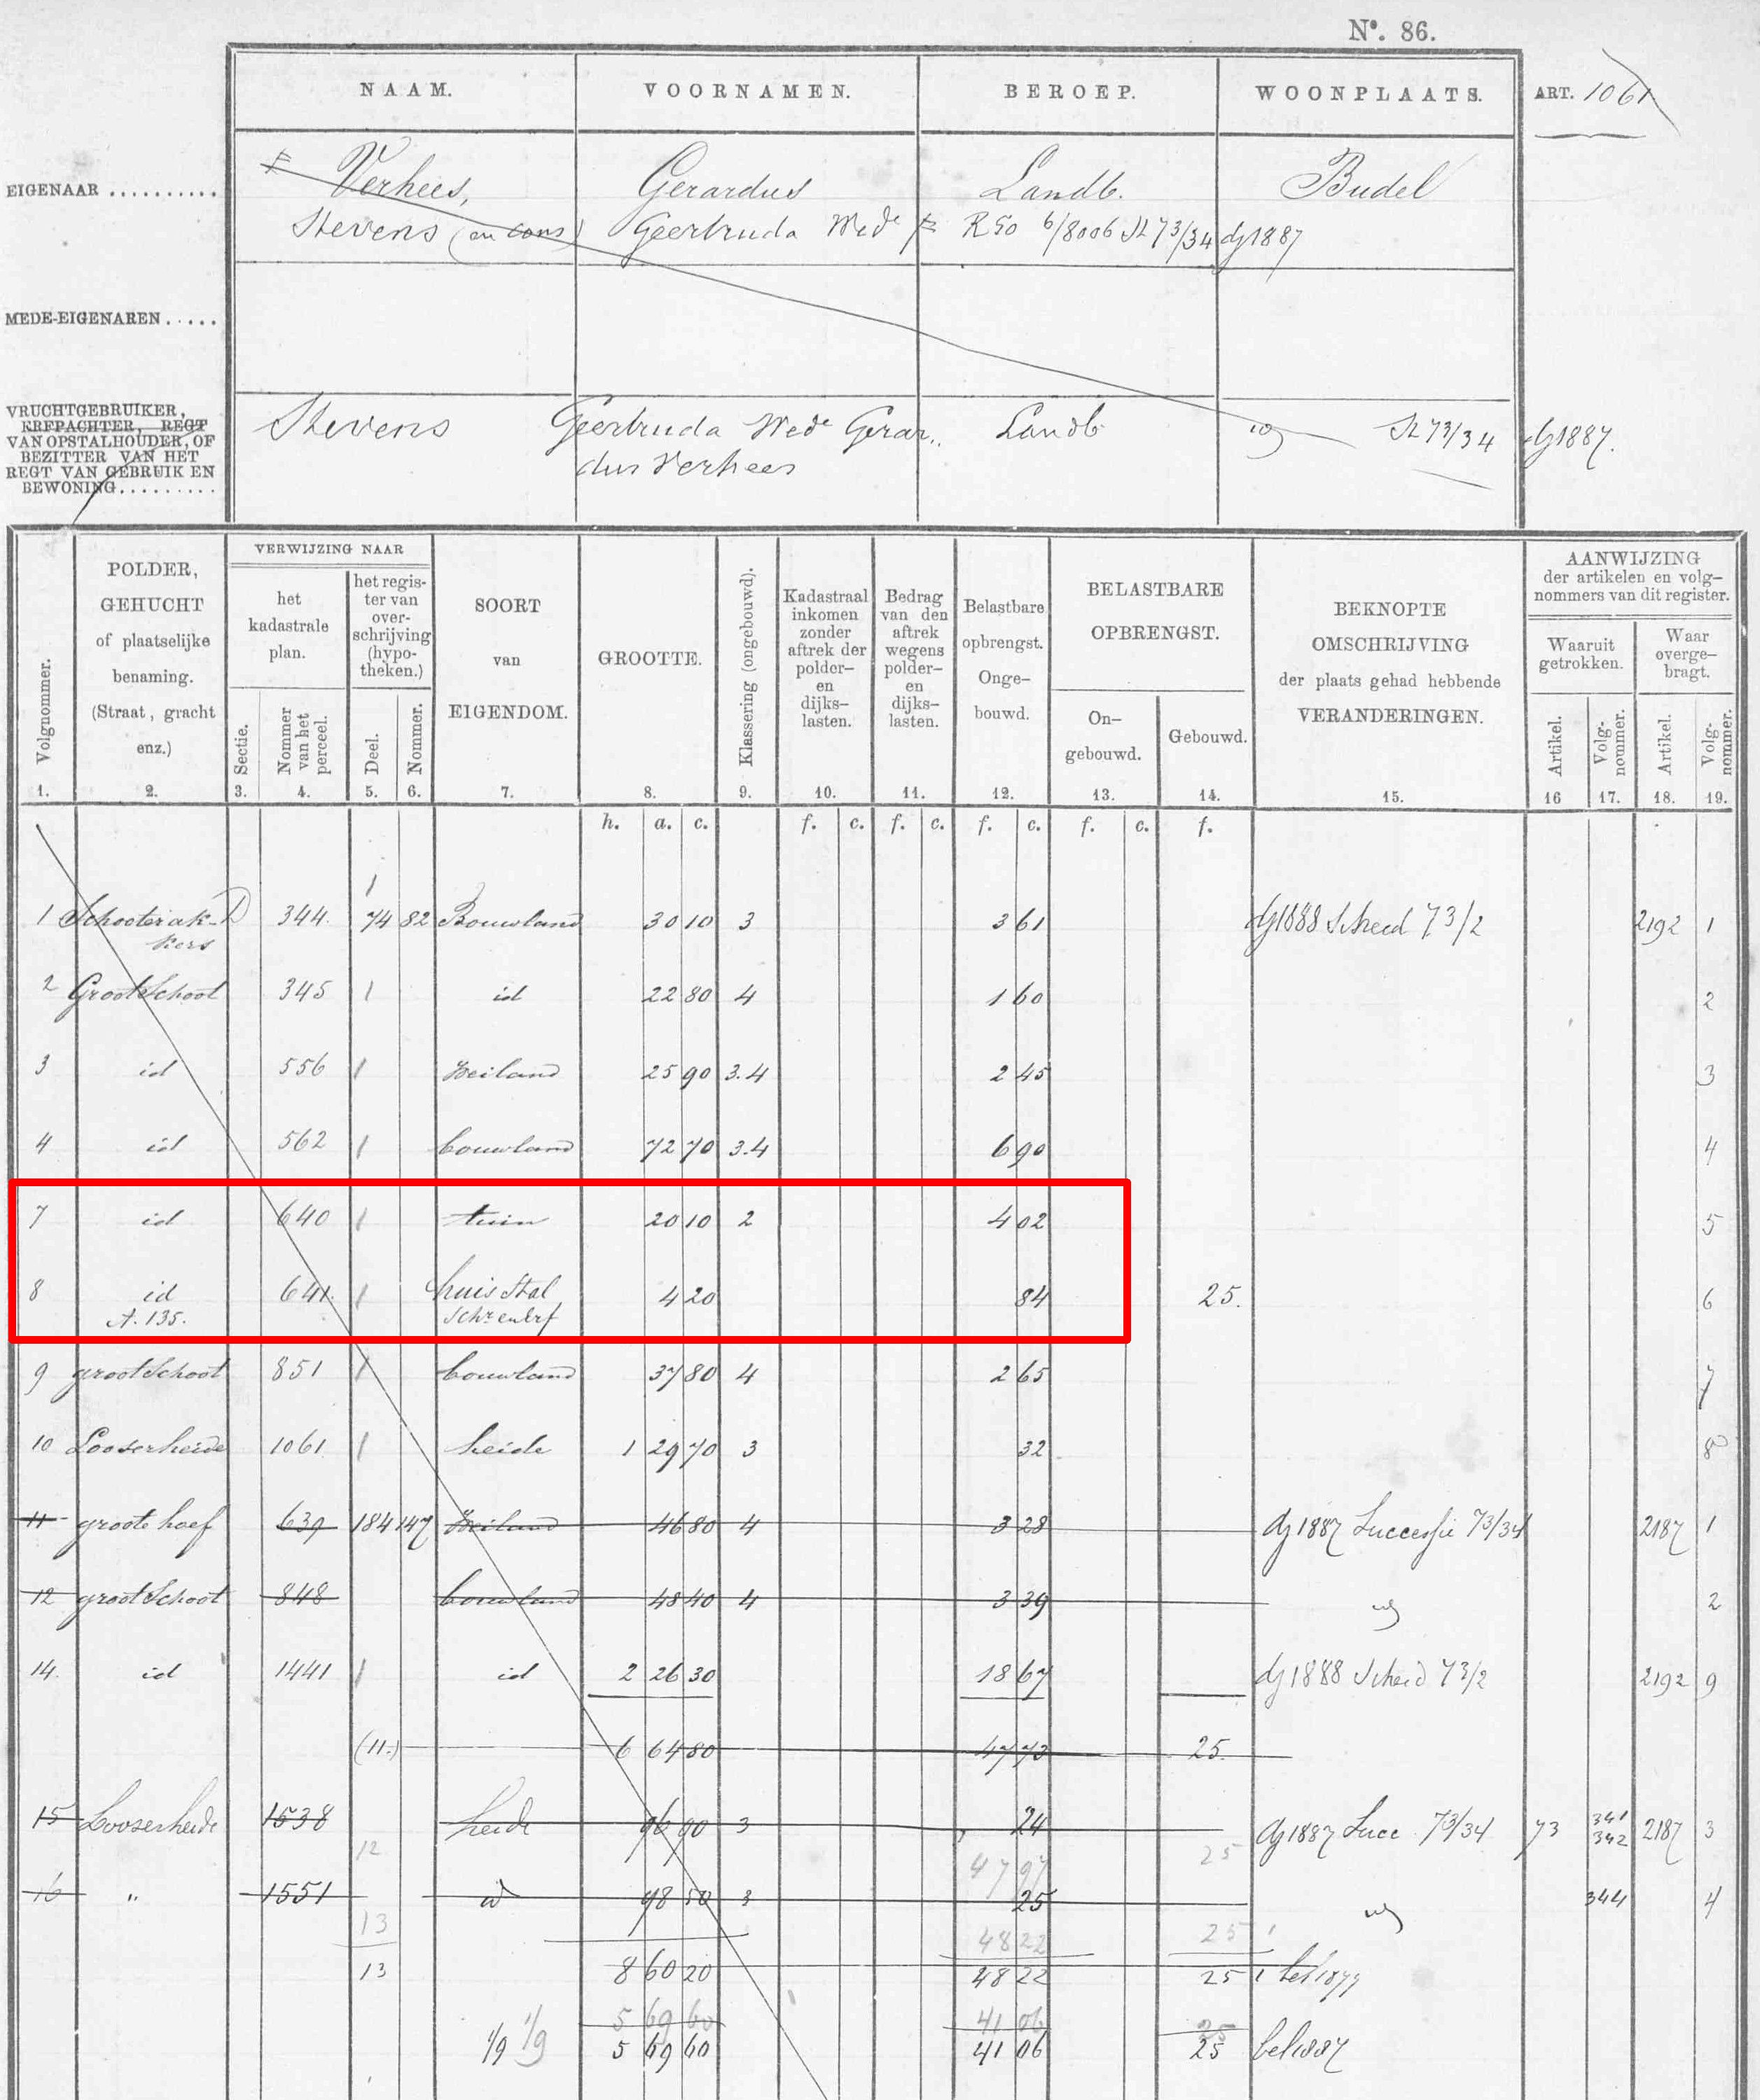 Nº. 86.
NAAM. VOORNAMEN. BEROEP. WOONPLAATS. ART. 1061
EIGENAAR .......... Verhees, Gerardus Landb. Budel
Stevens (en cons) Geertruda Wede R50 6/8006 St 73/34 dj1887
MEDE-EIGENAREN .....
VRUCHTGEBRUIKER,
ERFPACHTER, REGT
VAN OPSTALHOUDER, OF
BEZITTER VAN HET
REGT VAN GEBRUIK EN
BEWONING.........
Stevens Geertruda Wede Gerar.. Landb id St 73/34 dj1887.
dus Verhees
Volgnommer.
POLDER,
GEHUCHT
of plaatselijke
benaming.
(Straat, gracht
enz.)
VERWIJZING NAAR
het
kadastrale
plan.
het regis-
ter van
over-
schrijving
(hypo-
theken.)
Sectie.
Nommer
van het
perceel.
Deel.
Nommer.
SOORT
van
EIGENDOM.
GROOTTE.
Klassering (ongebouwd).
Kadastraal
inkomen
zonder
aftrek der
polder-
en
dijks-
lasten.
Bedrag
van den
aftrek
wegens
polder-
en
dijks-
lasten.
Belastbare
opbrengst.
Onge-
bouwd.
BELASTBARE
OPBRENGST.
On-
gebouwd.
Gebouwd.
BEKNOPTE
OMSCHRIJVING
der plaats gehad hebbende
VERANDERINGEN.
AANWIJZING
der artikelen en volg-
nommers van dit register.
Waaruit
getrokken.
Waar
overge-
bragt.
Artikel.
Volg-
nommer.
Artikel.
Volg-
nommer.
1. 2. 3. 4. 5. 6. 7. 8. 9. 10. 11. 12. 13. 14. 15. 16 17. 18. 19.
h. a. c. f. c. f. c. f. c. f. c. f.
1 Schooterak- D 344. 74 82 Bouwland 30 10 3 3 61 dj1888 Scheid 73/2 2192 1
kers
2 Groot Schoot 345 1 id 22 80 4 1 60 2
3 id 556 1 Weiland 25 90 3.4 2 45 3
4 id 562 1 bouwland 72 70 3.4 6 90 4
7 id 640 1 tuin 20 10 2 4 02 5
8 id 641 1 huis Stal 4 20 84 25. 6
A. 135. Schr en Erf
9 groot Schoot 851 1 bouwland 37 80 4 2 65 7
10 Looserheide 1061 1 heide 1 29 70 3 32 8
11 groote hoef 639 184 147 Weiland 46 80 4 3 28 dj1887 Successie 73/34 2187 1
12 groot Schoot 848 bouwland 48 40 4 3 39 id 2
14. id 1441 1 id 2 26 30 18 67 dj1888 Scheid 73/2 2192 9
(11.) 6 64 80 47 73 25.
15 Looserheide 1538 heide 96 90 3 24 dj1887 Succ 73/34 73 341 2187 3
342
12 47 97 25
16 " 1551 id 98 50 3 25 id 344 4
13 48 22 25
13 8 60 20 48 22 25 1 bel 1879
5 69 60 41 06 25
1/9 1/9 5 69 60 41 06 25 bel 1887